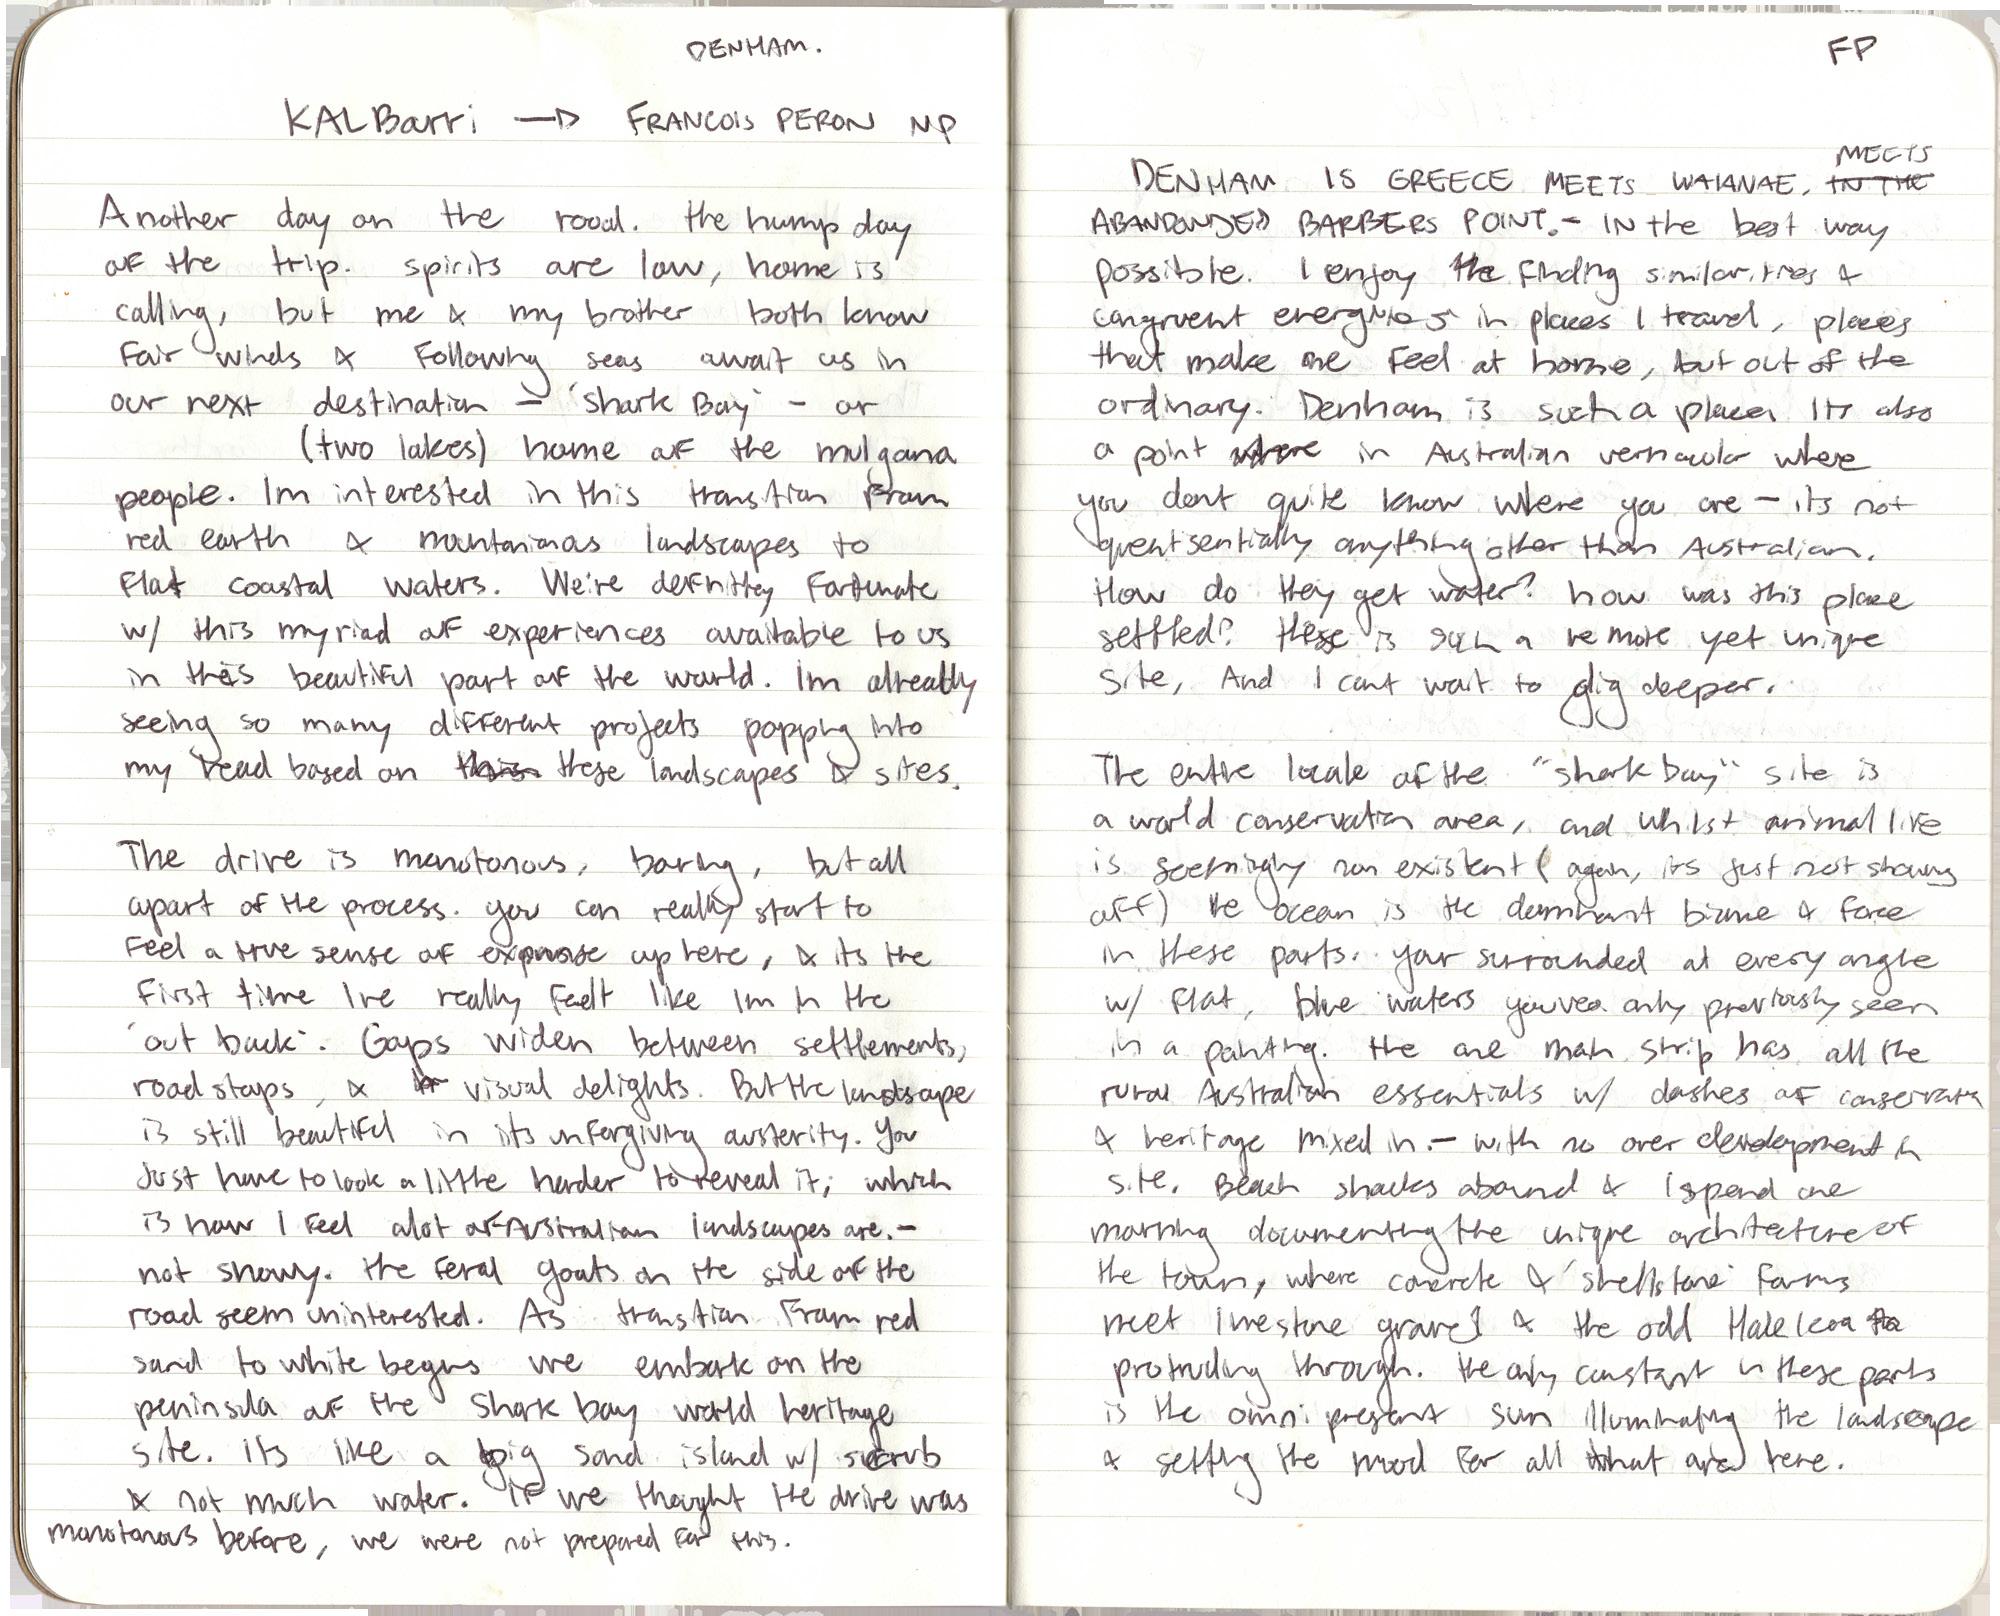 DENHAM.
KALBarri → FRANCOIS PERON NP
Another day on the road. the hump day
of the trip. spirits are low, home is
calling, but me & my brother both know
Fair winds & Following seas await us in
our next destination - 'Shark Bay' - or
(two lakes) home of the mulgana
people. Im interested in this transition From
red earth & mountanious landscapes to
Flat coastal waters. We're definitley Fortunate
w/ this myriad of experiences available to us
in this beautiful part of the world. Im already
seeing so many different projects popping into
my head based on these landscapes & sites.
The drive is monotonous, boring, but all
apart of the process. you can really start to
Feel a true sense of expanse up here, & its the
First time Ive really Feelt like Im in the
'out back'. Gaps widen between settlements,
road stops, & visual delights. But the landscape
is still beautiful in its unforgiving austerity. You
Just have to look a little harder to reveal it; which
is how I Feel alot of Australian landscapes are. -
not showy. the Feral goats on the side of the
road seem uninterested. As transtion From red
sand to white begins we embark on the
peninsula of the Shark bay world heritage
site. its like a big sand island w/ scrub
& not much water. if we thought the drive was
monotonous before, we were not prepared for this.
FP
MEETS
DENHAM IS GREECE MEETS WAIANAE, IN THE
ABANDONDED BARBERS POINT. - IN the best way
possible. I enjoy the finding similarities &
congruent energies in places I travel, places
that make me Feel at home, but out of the
ordinary. Denham is such a place. Its also
a point where in Australian vernacular where
you dont quite know where you are - its not
quentsentially anything other than Australian.
How do they get water? how was this place
settled? these is such a remote yet unique
site, And I cant wait to dig deeper.
The entire locale of the "shark bay" site is
a world conservation area, and whilst animal life
is seemingly non existent (again, its just not showy
off) the ocean is the dominant biome & force
in these parts. your surrounded at every angle
w/ Flat, blue waters youve only previously seen
in a painting. the one main strip has all the
rural Australian essentials w/ dashes of conservation
& heritage mixed in. - with no over development in
site. Beach shacks abound & I spend one
morning documenting the unique architecture of
the town, where concrete & 'shellstone' forms
meet limestone gravel & the odd Haleleoa
protruding through. the only constant in these parts
is the omni present sun illuminating the landscape
& setting the mood For all that are here.